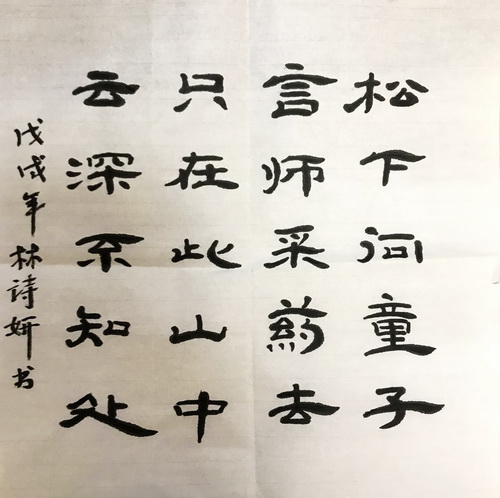 松下问童子
言师采药去
只在此山中
云深不知处
戊戌年林詩妍书